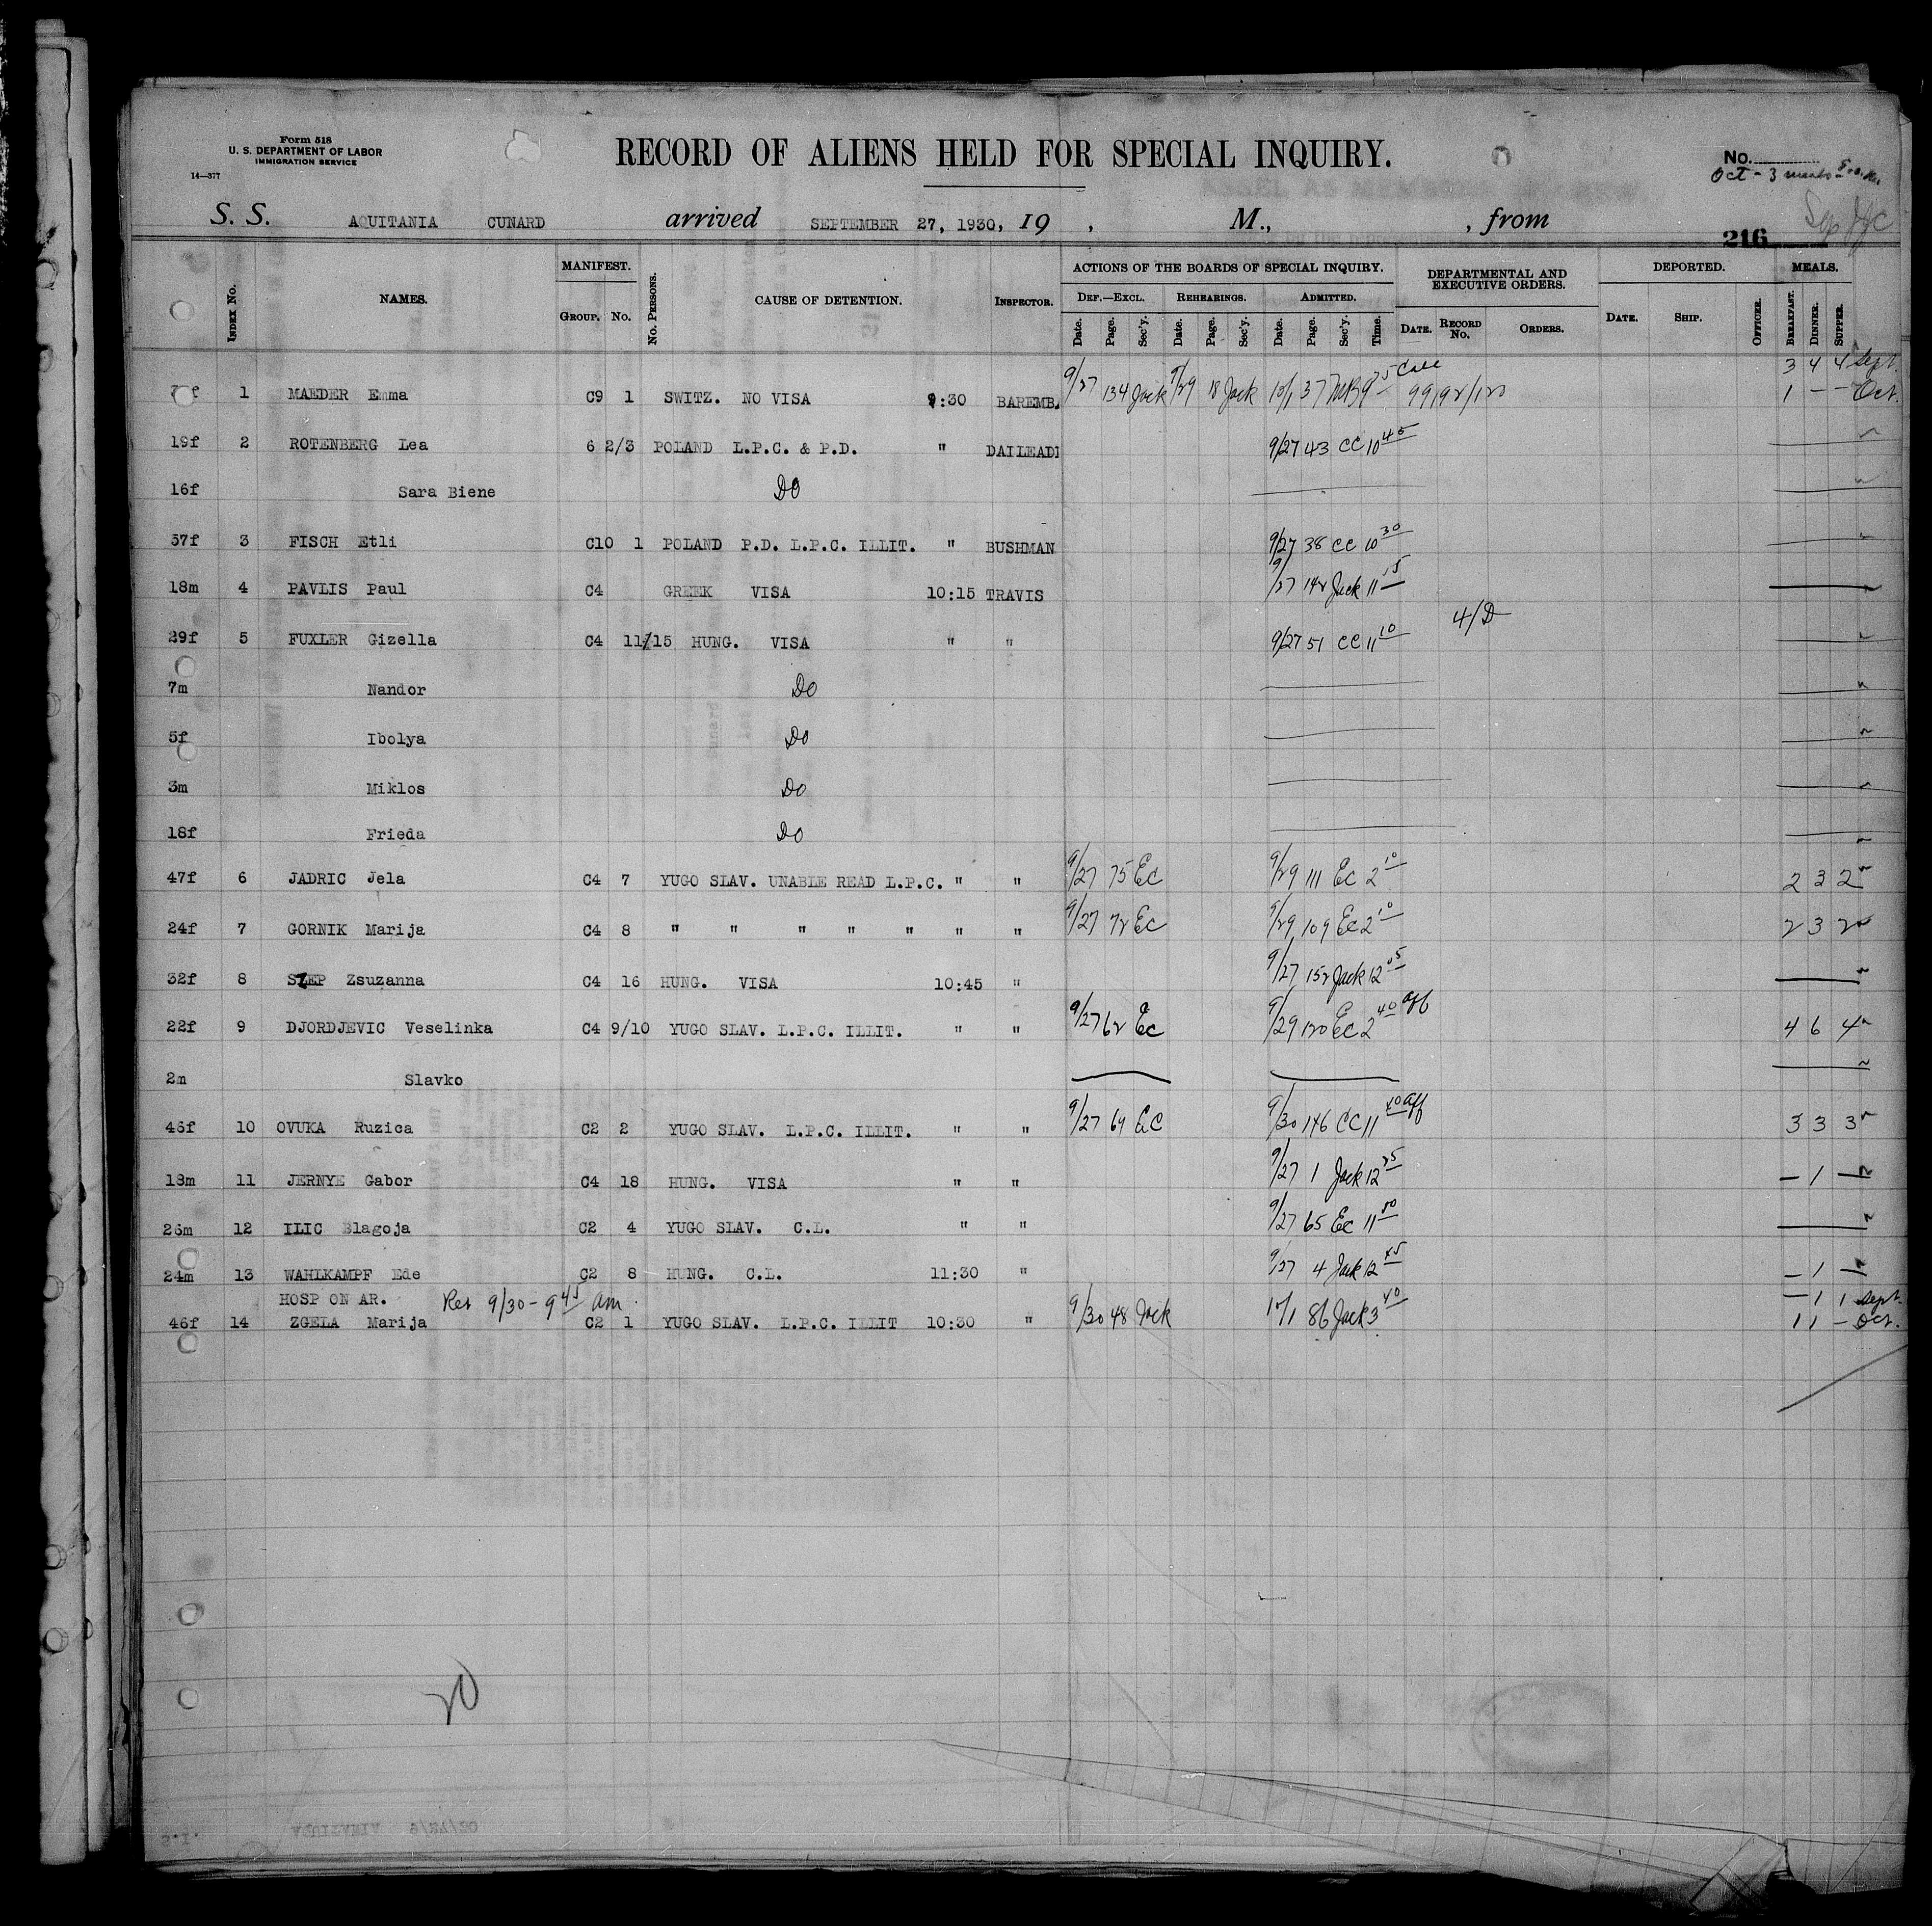 Form 518
U. S. DEPARTMENT OF LABOR
IMMIGRATION SERVICE
14—377
RECORD OF ALIENS HELD FOR SPECIAL INQUIRY.
No.
Oct - 3 meals
S. S. AQUITANIA CUNARD arrived SEPTEMBER 27, 1930, 19 , M., , from
216
INDEX No. NAMES. MANIFEST. GROUP. No. No. PERSONS. CAUSE OF DETENTION. INSPECTOR. ACTIONS OF THE BOARDS OF SPECIAL INQUIRY. DEF.—EXCL. REHEARINGS. ADMITTED. DEPARTMENTAL AND EXECUTIVE ORDERS. DEPORTED. MEALS.
Date. Page. Sec'y. Date. Page. Sec'y. Date. Page. Sec'y. Time. DATE. RECORD No. ORDERS. DATE. SHIP. OFFICER. BREAKFAST. DINNER. SUPPER.
3 4 4 Sept.
f 1 MAEDER Emma C9 1 SWITZ. NO VISA 9:30 BAREMBA 9/27 134 Jack 9/29 18 Jack 10/1 37 99192/120 1 — — Oct.
19f 2 ROTENBERG Lea 6 2/3 POLAND L.P.C. & P.D. " DAILEADE 9/27 43 CC 10 45
16f Sara Biene DO
57f 3 FISCH Etli C10 1 POLAND P.D. L.P.C. ILLIT. " BUSHMAN 9/27 38 CC 10 30
18m 4 PAVLIS Paul C4 GREEK VISA 10:15 TRAVIS 9/27 142 Jack 11 15
4/D
29f 5 FUXLER Gizella C4 11/15 HUNG. VISA " " 9/27 51 CC 11 10
7m Nandor DO
5f Ibolya DO
3m Miklos DO
18f Frieda DO
47f 6 JADRIC Jela C4 7 YUGO SLAV. UNABLE READ L.P.C. " " 9/27 75 EC 9/29 111 EC 2 10 2 3 2
24f 7 GORNIK Marija C4 8 " " " " " " " 9/27 72 EC 9/29 109 EC 2 10 2 3 2
32f 8 SZEP Zsuzanna C4 16 HUNG. VISA 10:45 " 9/27 152 Jack 12 05
22f 9 DJORDJEVIC Veselinka C4 9/10 YUGO SLAV. L.P.C. ILLIT. " " 9/27 62 EC 9/29 120 EC 2 40 aff 4 6 4
2m Slavko
46f 10 OVUKA Ruzica C2 2 YUGO SLAV. L.P.C. ILLIT. " " 9/27 69 EC 9/30 146 CC 11 40 aff 3 3 3
18m 11 JERNYE Gabor C4 18 HUNG. VISA " " 9/27 1 Jack 12 25 — 1 —
26m 12 ILIC Blagoja C2 4 YUGO SLAV. C.L. " " 9/27 65 EC 11 50
24m 13 WAHLKAMPF Ede C2 8 HUNG. C.L. 11:30 " 9/27 4 Jack 12 45 — 1 —
HOSP ON AR. Rel 9/30 - 9 45 am — 1 1 Sept.
46f 14 ZGELA Marija C2 1 YUGO SLAV. L.P.C. ILLIT 10:30 " 9/30 48 Jack 10/1 86 Jack 3 40 1 1 — Oct.
20